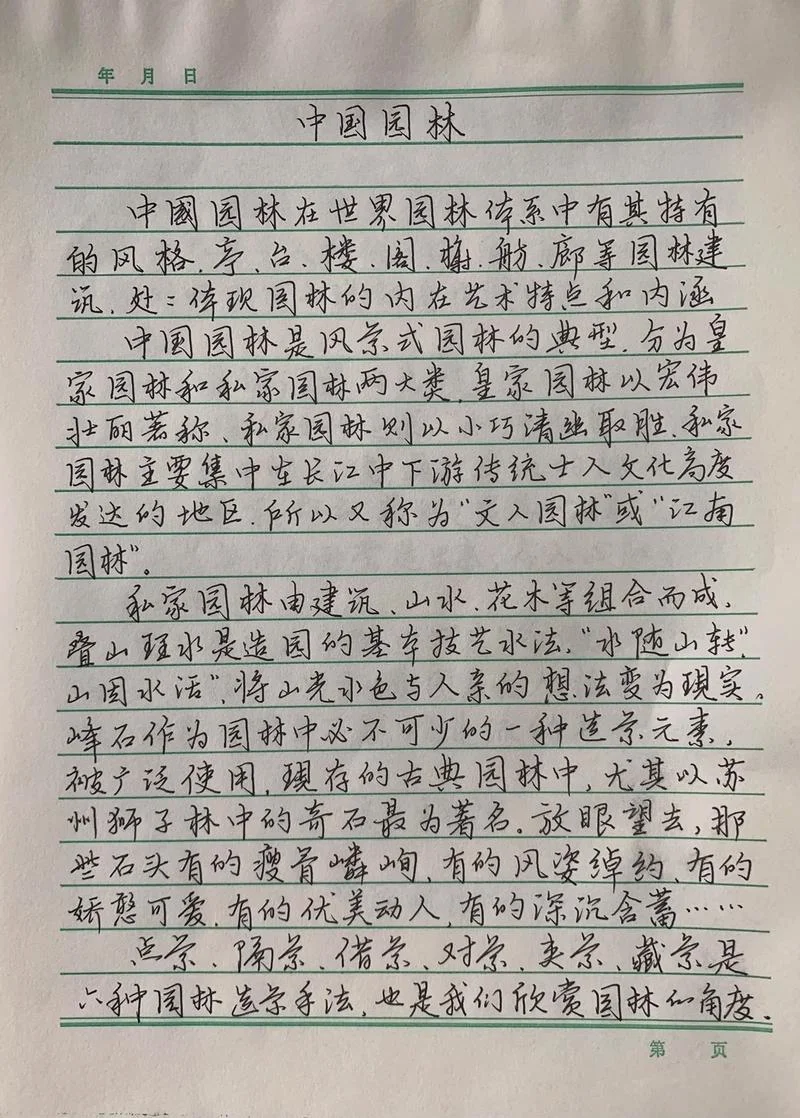 年 月 日
中国园林
中國园林在世界园林体系中有其特有
的风格.亭、台、楼、阁、榭、舫、廊等园林建
筑.处二体现园林的内在艺术特点和内涵
中国园林是风景式园林的典型.分为皇
家园林和私家园林两大类.皇家园林以宏伟
壮丽著称、私家园林则以小巧清幽取胜.私家
园林主要集中在长江中下游传统士人文化高度
发达的地区.所以又称为“文人园林”或“江南
园林”。
私家园林由建筑、山水、花木等组合而成.
叠山理水是造园的基本技艺水法.“水随山转”,
山因水活”.将山光水色与人亲的想法变为現实。
峰石作为园林中必不可少的一种造景元素,
被广泛使用.現存的古典园林中,尤其以苏
州狮子林中的奇石最为著名。放眼望去,那
些石头有的瘦骨嶙峋,有的风姿绰约,有的
娇憨可爱.有的优美动人,有的深沉含蓄……
点景、隔景、借景、对景、夹景、藏景是
六种园林造景手法.也是我们欣赏园林的角度.
第 页